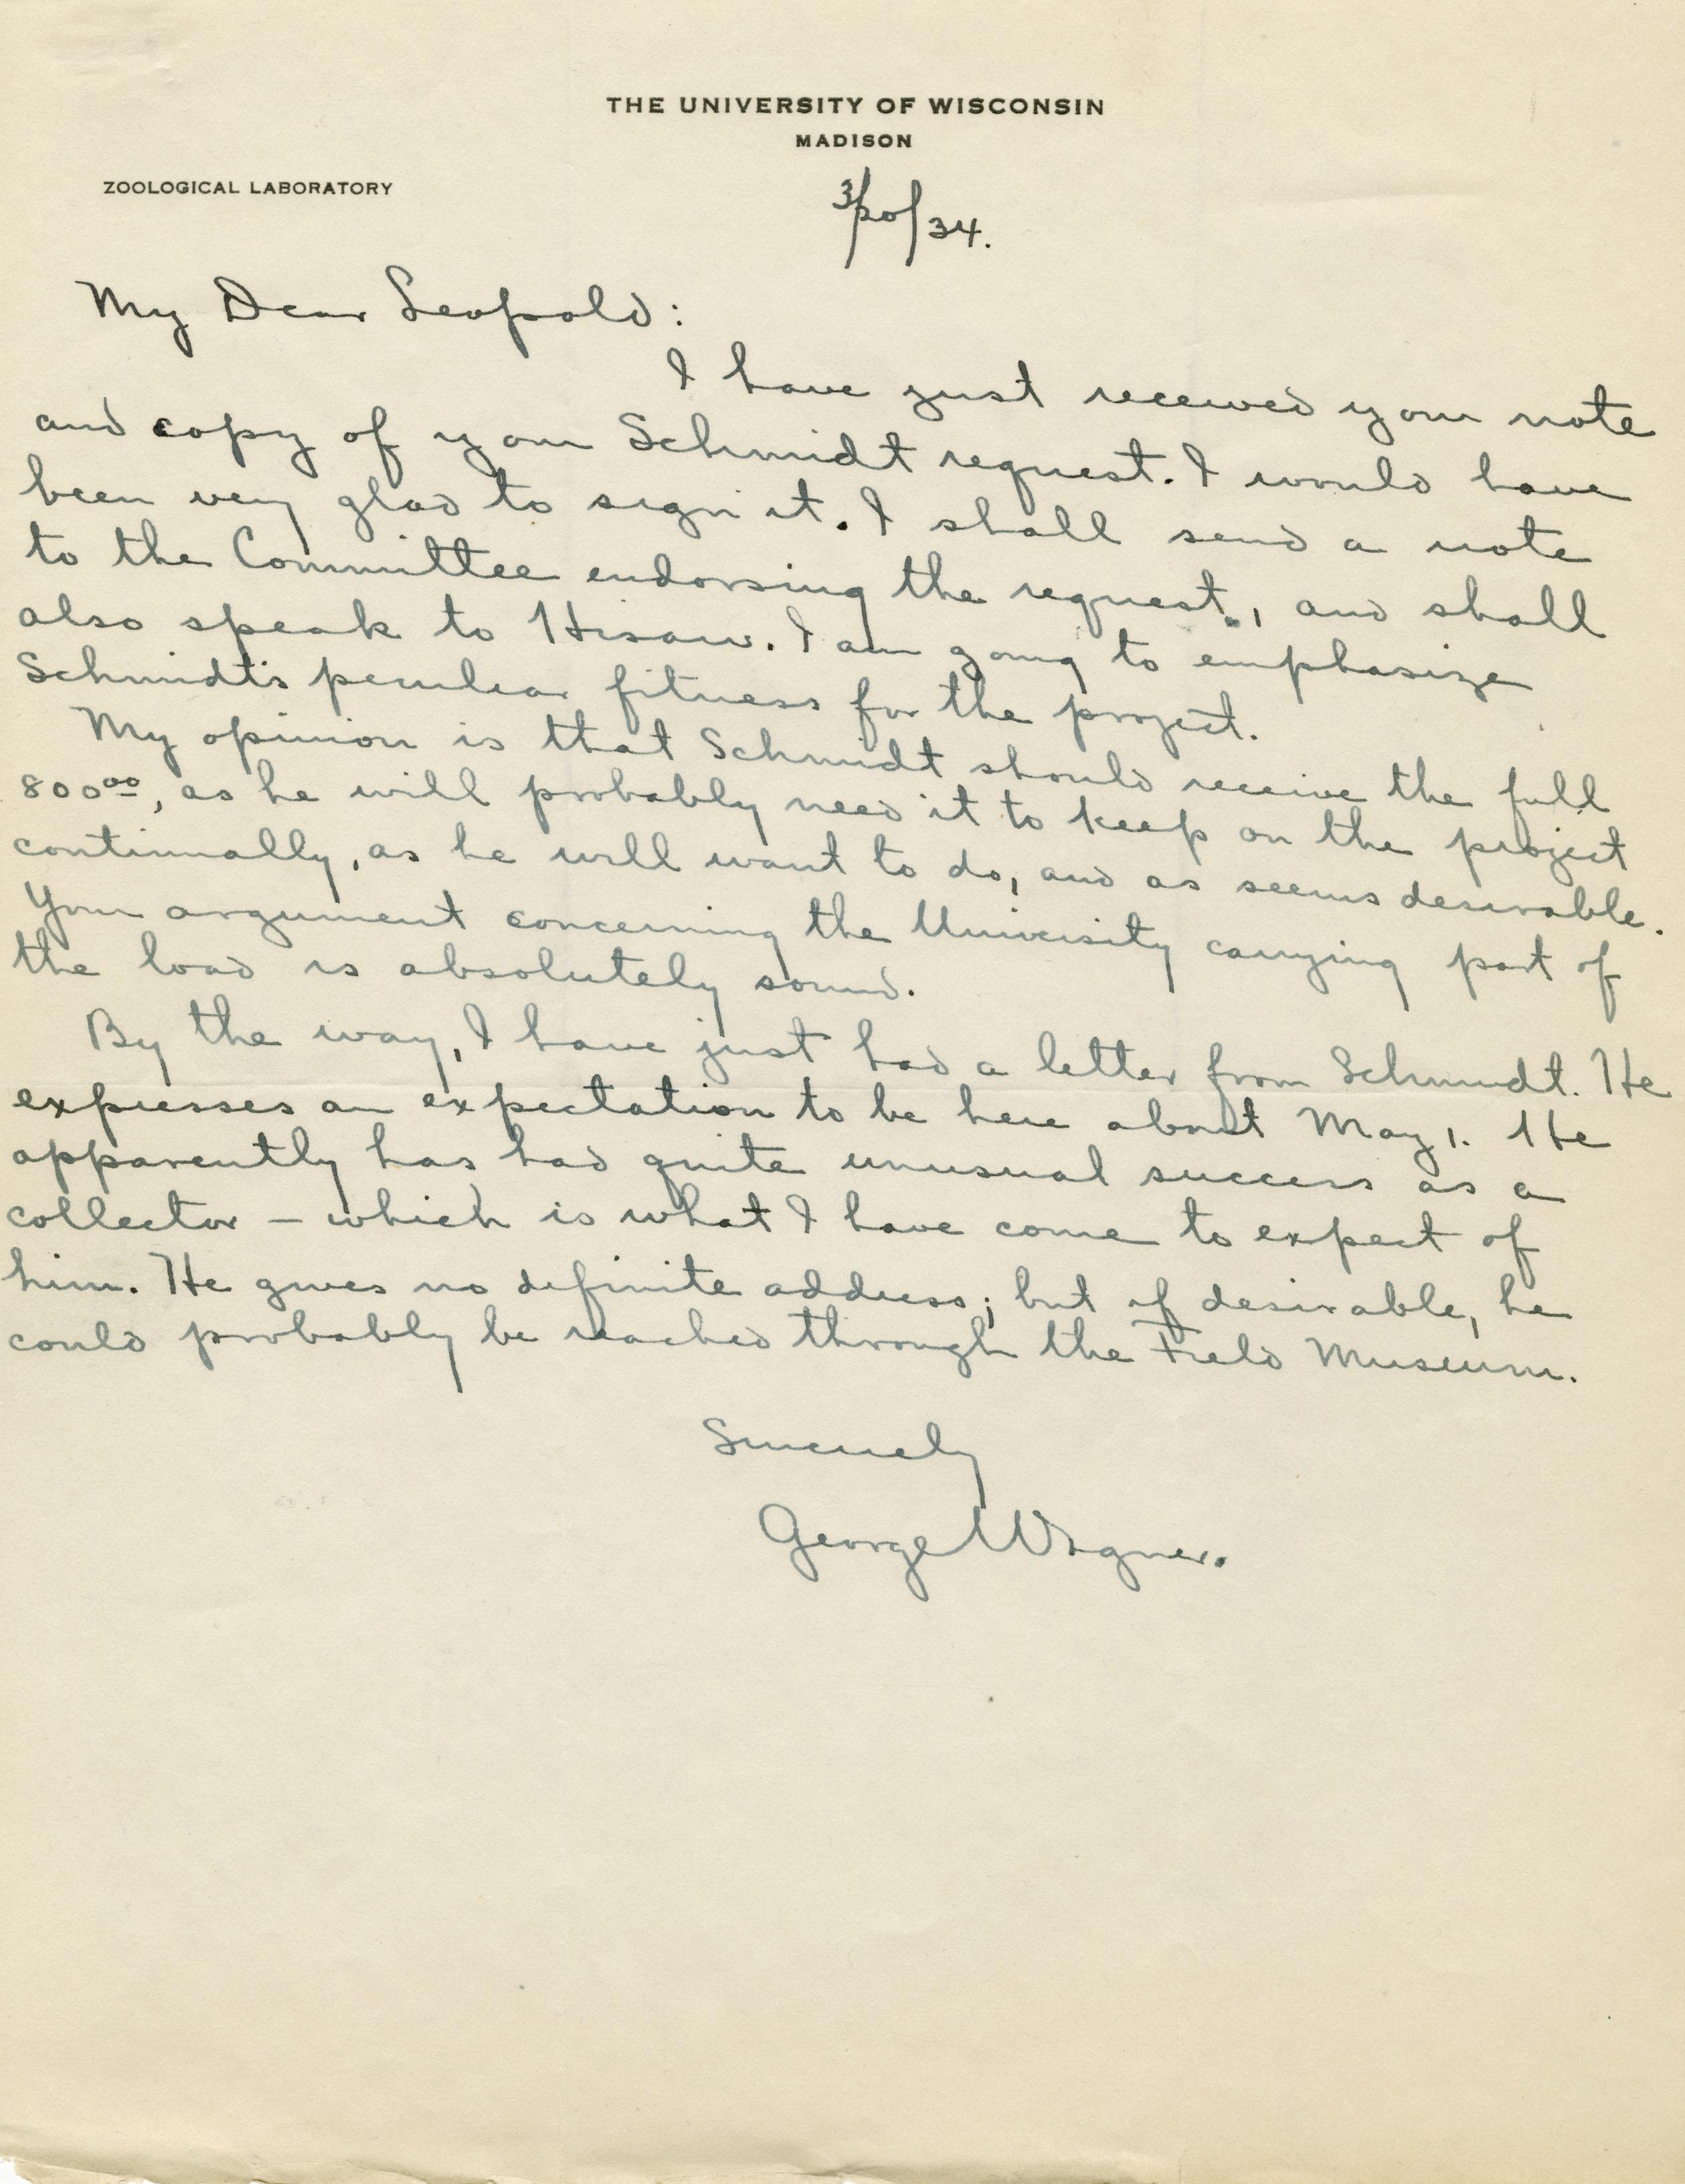 THE UNIVERSITY OF WISCONSIN
MADISON
ZOOLOGICAL LABORATORY
3/20/34.
My Dear Leopold:
I have just received your note
and copy of your Schmidt request. I would have
been very glad to sign it. I shall send a note
to the Committee endorsing the request, and shall
also speak to Hisaw. I am going to emphasize
Schmidt's peculiar fitness for the project.
My opinion is that Schmidt should receive the full
800.00, as he will probably need it to keep on the project
continually, as he will want to do, and as seems desirable.
Your argument concerning the University carrying part of
the load is absolutely sound.
By the way, I have just had a letter from Schmidt. He
expresses an expectation to be here about May 1. He
apparently has had quite unusual success as a
collector – which is what I have come to expect of
him. He gives no definite address; but if desirable, he
could probably be reached through the Field Museum.
Sincerely
George Wagner.